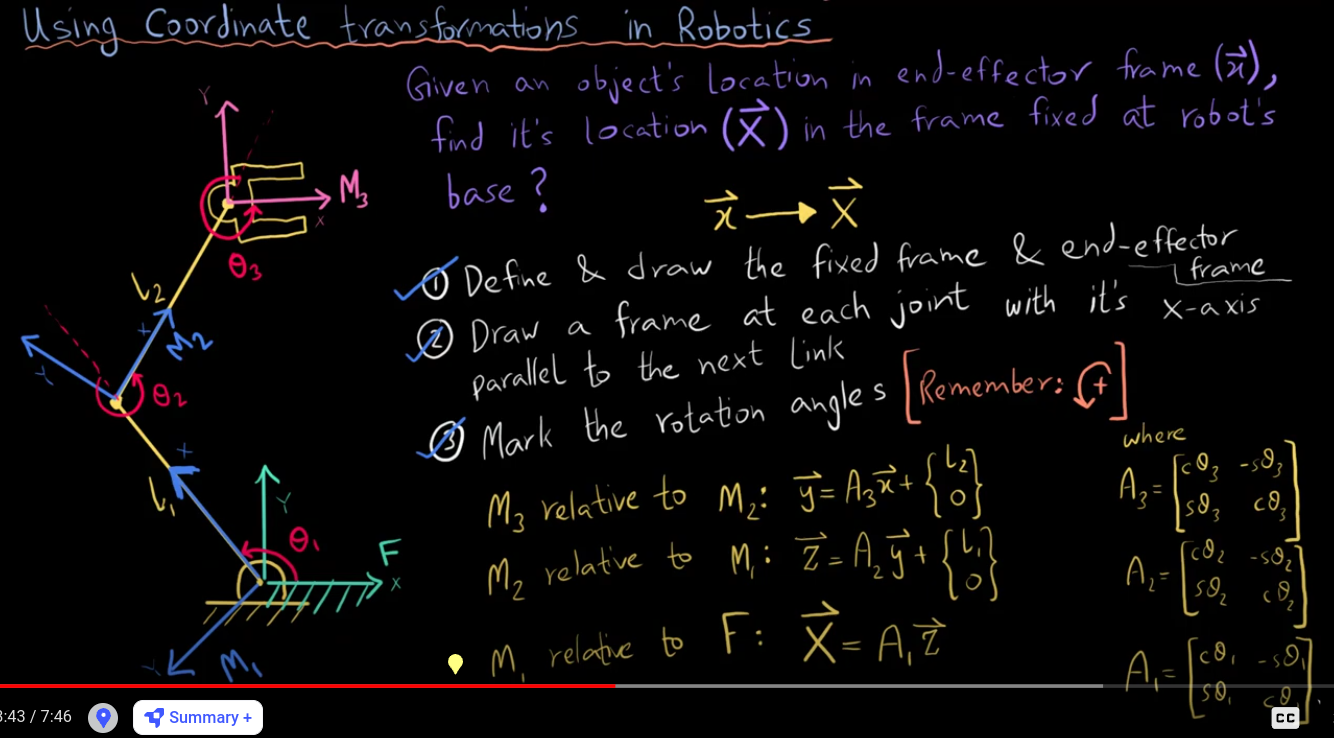 Using Coordinate transformations in Robotics
Given an object's location in end-effector frame (x⃗),
find it's location (X⃗) in the frame fixed at robot's
base?
x⃗ → X⃗
① Define & draw the fixed frame & end-effector
frame
② Draw a frame at each joint with it's x-axis
parallel to the next link
③ Mark the rotation angles [Remember: +]
M₃ relative to M₂: y⃗ = A₃x⃗ + {L₂ 0}
M₂ relative to M₁: z⃗ = A₂y⃗ + {L₁ 0}
M₁ relative to F: X⃗ = A₁z⃗
where
A₃ = [cθ₃ -sθ₃
sθ₃ cθ₃]
A₂ = [cθ₂ -sθ₂
sθ₂ cθ₂]
A₁ = [cθ₁ -sθ₁
sθ₁ cθ₁]
Y
M₃
x
θ₃
L₂
M₂
θ₂
L₁
Y
θ₁
F
x
M₁
3:43 / 7:46
Summary +
CC